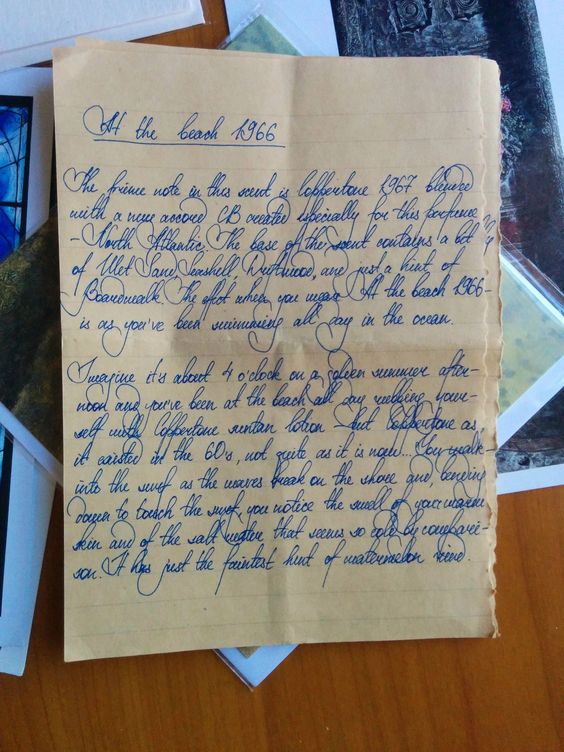 At the beach 1966
The prime note in this scent is Coppertone 1967 blended
with a new accord CB created especially for this perfume
- North Atlantic. The base of the scent contains a bit
of Wet Sand, Seashell, Driftwood, and just a hint of
Boardwalk. The effect when you wear At the beach 1966 -
is as you've been swimming all day in the ocean.
Imagine it's about 4 o'clock on a golden summer after-
noon and you've been at the beach all day rubbing your-
self with Coppertone suntan lotion - but Coppertone as
it existed in the 60's, not quite as it is now... You walk
into the surf as the waves break on the shore and, bending
down to touch the surf, you notice the smell of your warm
skin and of the salt water that seems so cold by compari-
son. It has just the faintest hint of watermelon rind.